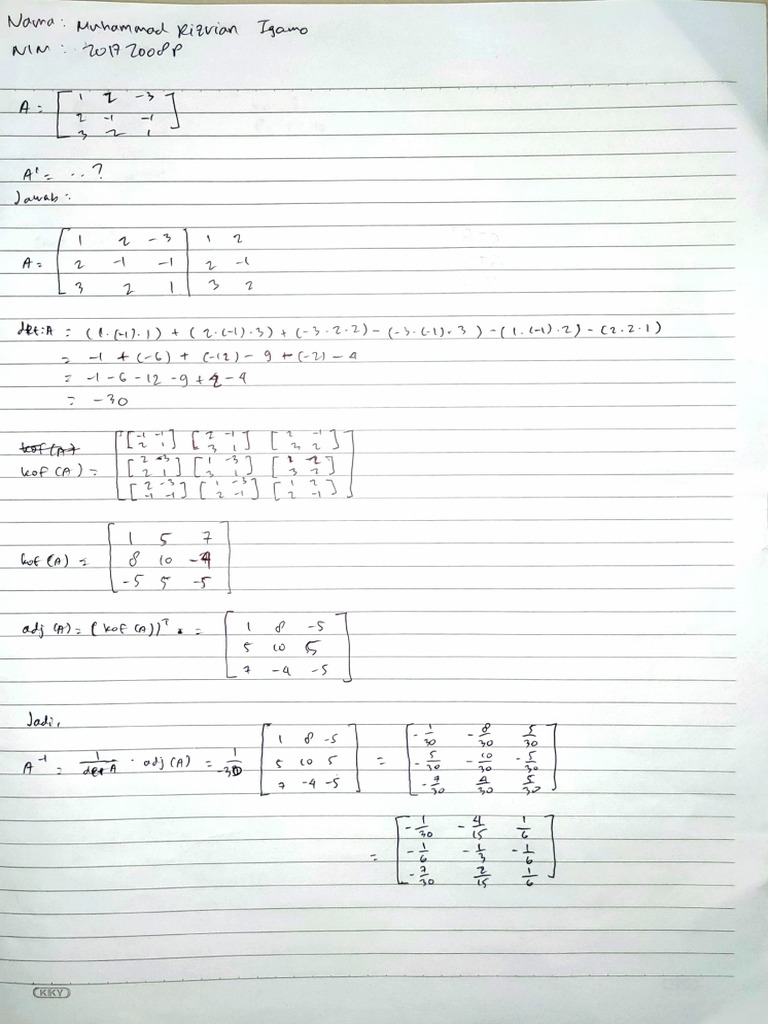 Nama : Muhammad Rizvian Igamo
NIM : 20172008P
A = [ 1 2 -3
2 -1 -1
3 2 1 ]
A' = ...?
Jawab :
A = [ 1 2 -3 | 1 2
2 -1 -1 | 2 -1
3 2 1 | 3 2
det A = (1.(-1).1) + (2.(-1).3) + (-3.2.2) - (-3.(-1).3) - (1.(-1).2) - (2.2.1)
= -1 + (-6) + (-12) - 9 + (-2) - 4
= -1 - 6 - 12 - 9 + 2 - 4
= -30
kof (A)
kof (A) = [ [-1 -1 2 1] [2 -1 3 1] [2 -1 3 2]
[2 -3 2 1] [1 -3 3 1] [1 2 3 2]
[2 -3 -1 -1] [1 -3 2 -1] [1 2 2 -1] ]
kof (A) = [ 1 5 7
8 10 -4
-5 5 -5 ]
adj (A) = (kof (A))ᵀ = [ 1 8 -5
5 10 5
7 -4 -5 ]
Jadi,
A⁻¹ = 1/det A . adj (A) = 1/-30 [ 1 8 -5 5 10 5 7 -4 -5 ] = [ -1/30 -8/30 5/30
-5/30 -10/30 -5/30
-7/30 4/30 5/30 ]
= [ -1/30 -4/15 1/6
-1/6 -1/3 -1/6
-7/30 2/15 1/6 ]
KKY